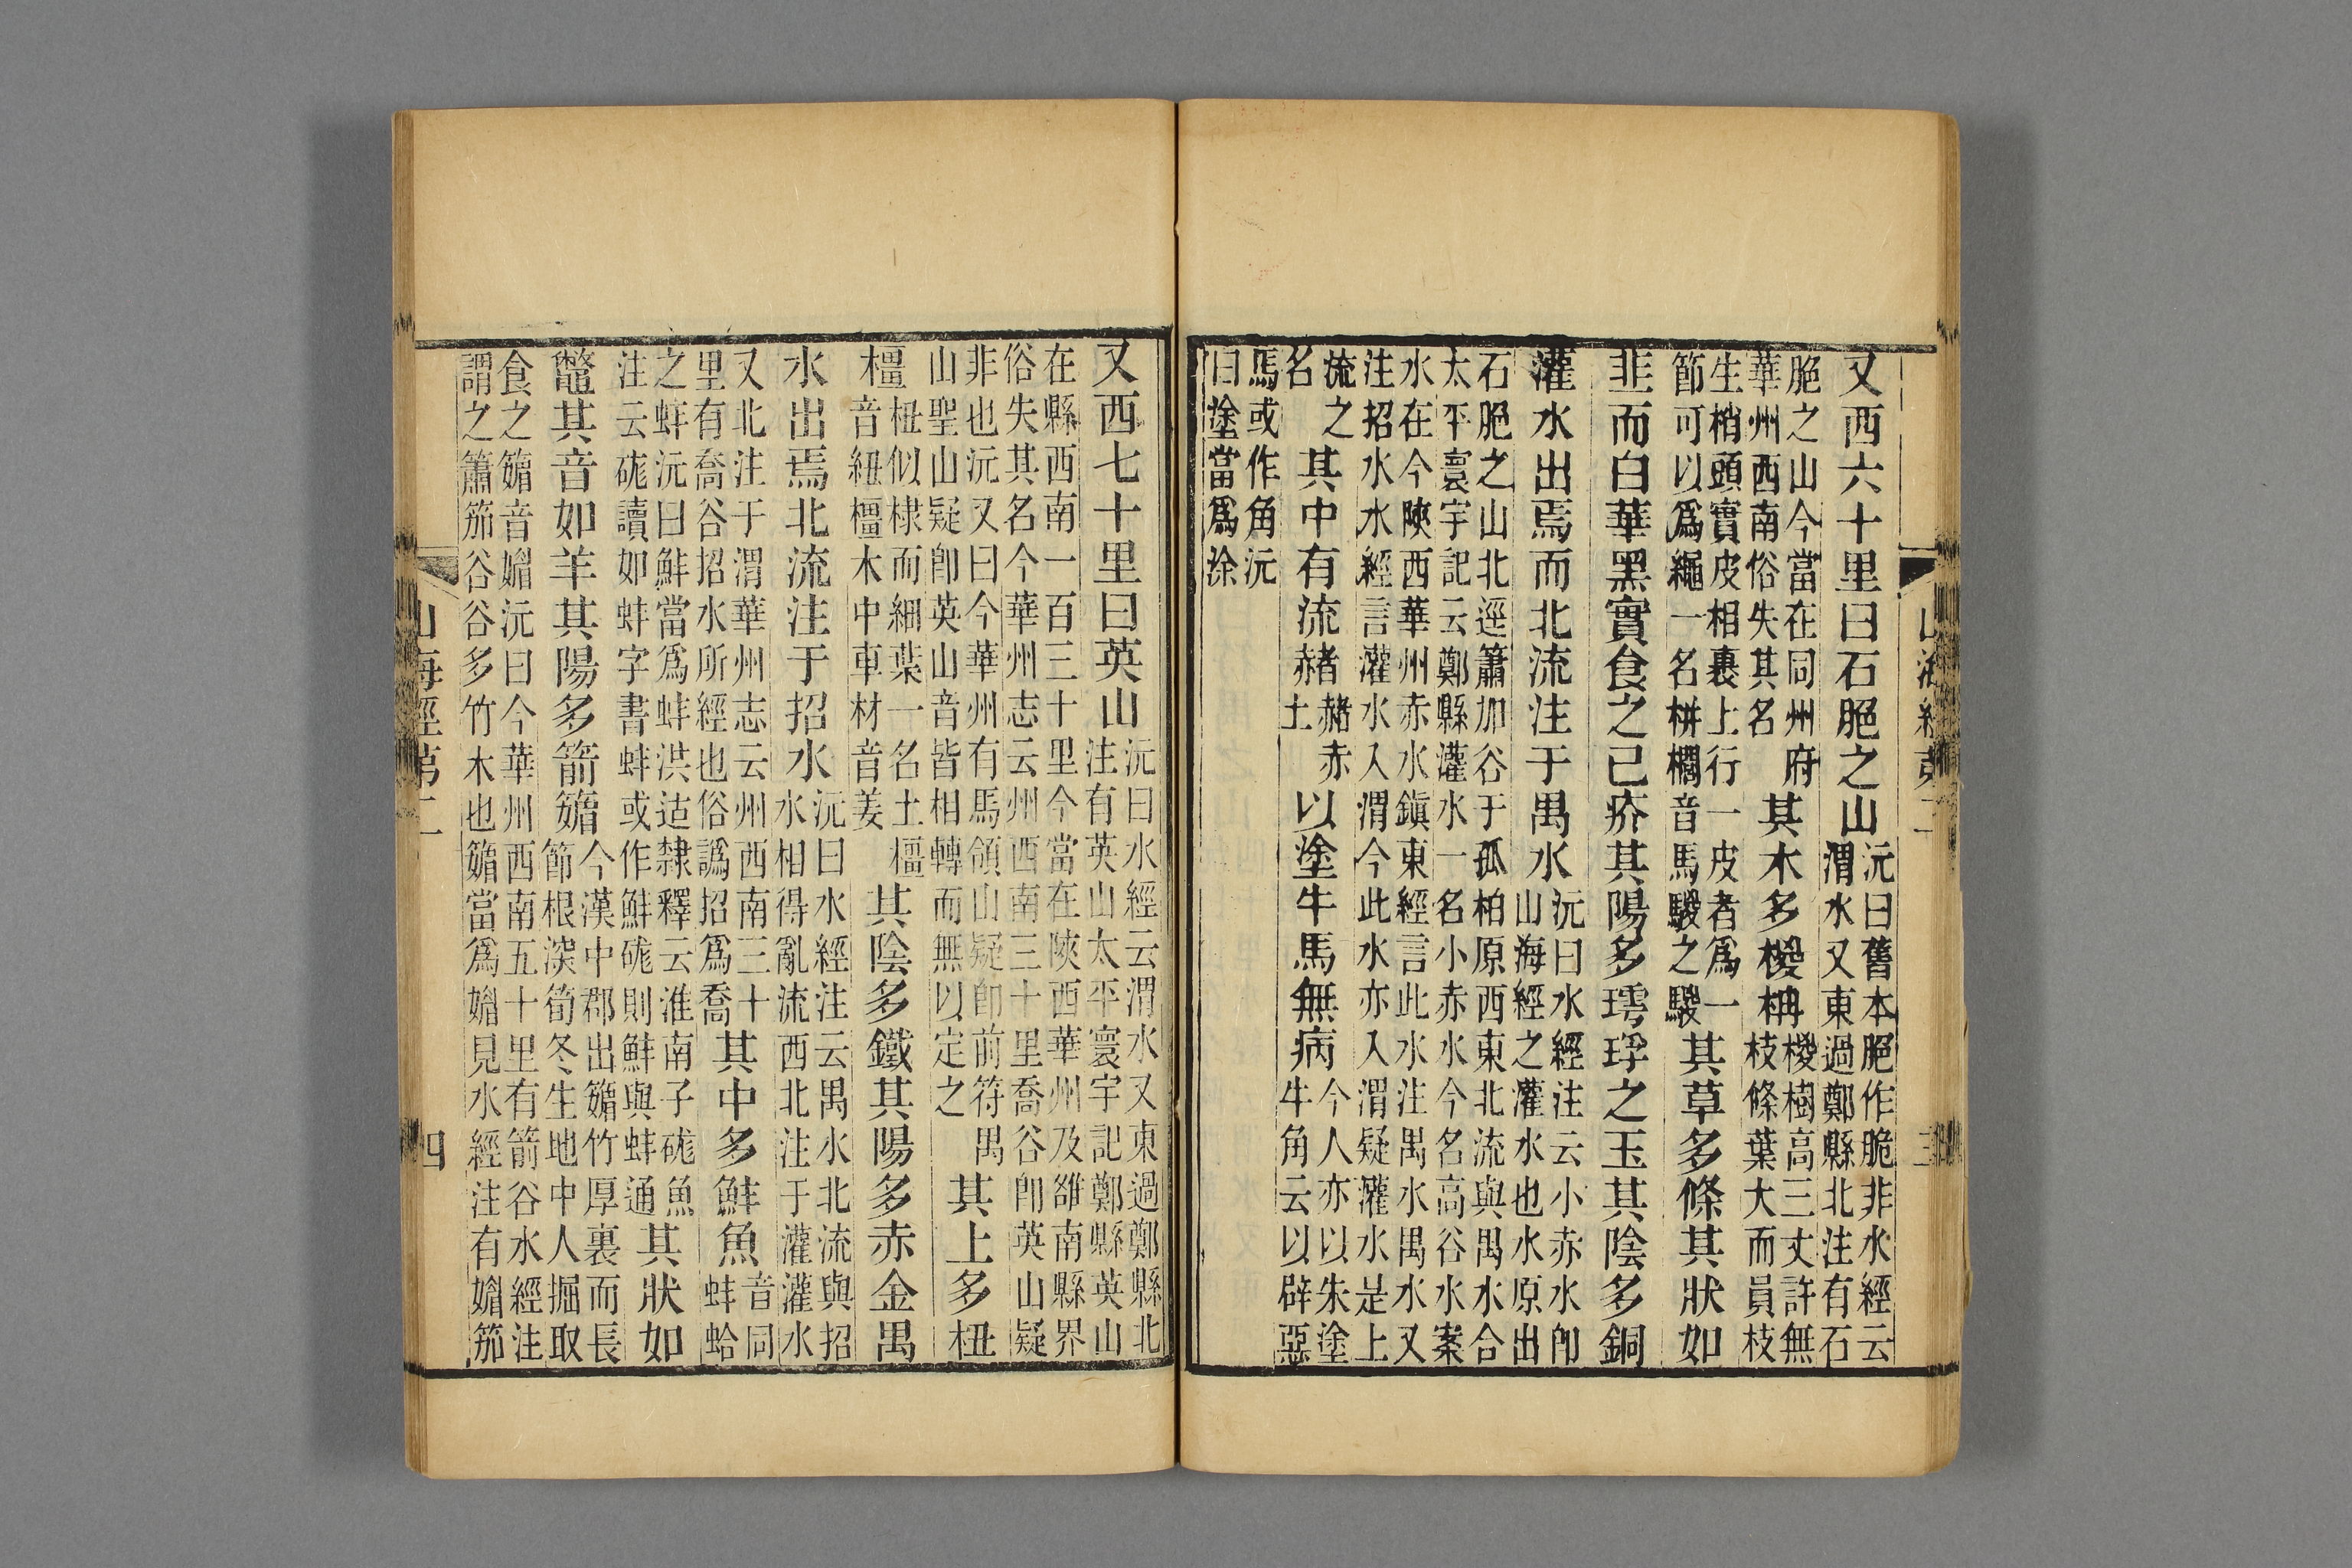 山海經第二 三
又西六十里曰石脃之山
沅曰舊本脃作脆非水經云
渭水又東過鄭縣北注有石
脃之山今當在同州府
華州西南俗失其名
其木多椶枏
椶樹高三丈許無
枝條葉大而員枝
生梢頭實皮相裹上行一皮者爲一
節可以爲繩一名栟櫚音馬騣之騣
其草多條其狀如
韭而白華黑實食之已疥其陽多㻬琈之玉其陰多銅
灌水出焉而北流注于禺水
沅曰水經注云小赤水卽
山海經之灌水也水原出
石脃之山北逕簫加谷于孤柏原西東北流與禺水合
太平寰宇記云鄭縣灌水一名小赤水今名高谷水案
水在今陝西華州赤水鎭東經言此水注禺水禺水又
注招水水經言灌水入渭今此水亦入渭疑灌水是上
流之
名
其中有流赭
赭赤
土
以塗牛馬無病
今人亦以朱塗
牛角云以辟惡
馬或作角沅
曰塗當爲涂
又西七十里曰英山
沅曰水經云渭水又東過鄭縣北
注有英山太平寰宇記鄭縣英山
在縣西南一百三十里今當在陝西華州及雒南縣界
俗失其名今華州志云州西南三十里喬谷卽英山疑
非也沅又曰今華州有馬頷山疑卽前符禺
山聖山疑卽英山音皆相轉而無以定之
其上多杻
橿
杻似棣而細葉一名土橿
音紐橿木中車材音姜
其陰多鐵其陽多赤金禺
水出焉北流注于招水
沅曰水經注云禺水北流與招
水相得亂流西北注于灌灌水
又北注于渭華州志云州西南三十
里有喬谷招水所經也俗譌招爲喬
其中多䰷魚
音同
蚌蛤
之蚌沅曰䰷當爲蚌洪适隸釋云淮南子硥魚
注云硥讀如蚌字書蚌或作䰷硥則䰷與蚌通
其狀如
鼈其音如羊其陽多箭䉋
今漢中郡出䉋竹厚裏而長
節根深筍冬生地中人掘取
食之䉋音媚沅曰今華州西南五十里有箭谷水經注
謂之簫笳谷谷多竹木也䉋當爲媚見水經注有媚笳
山海經第二 四